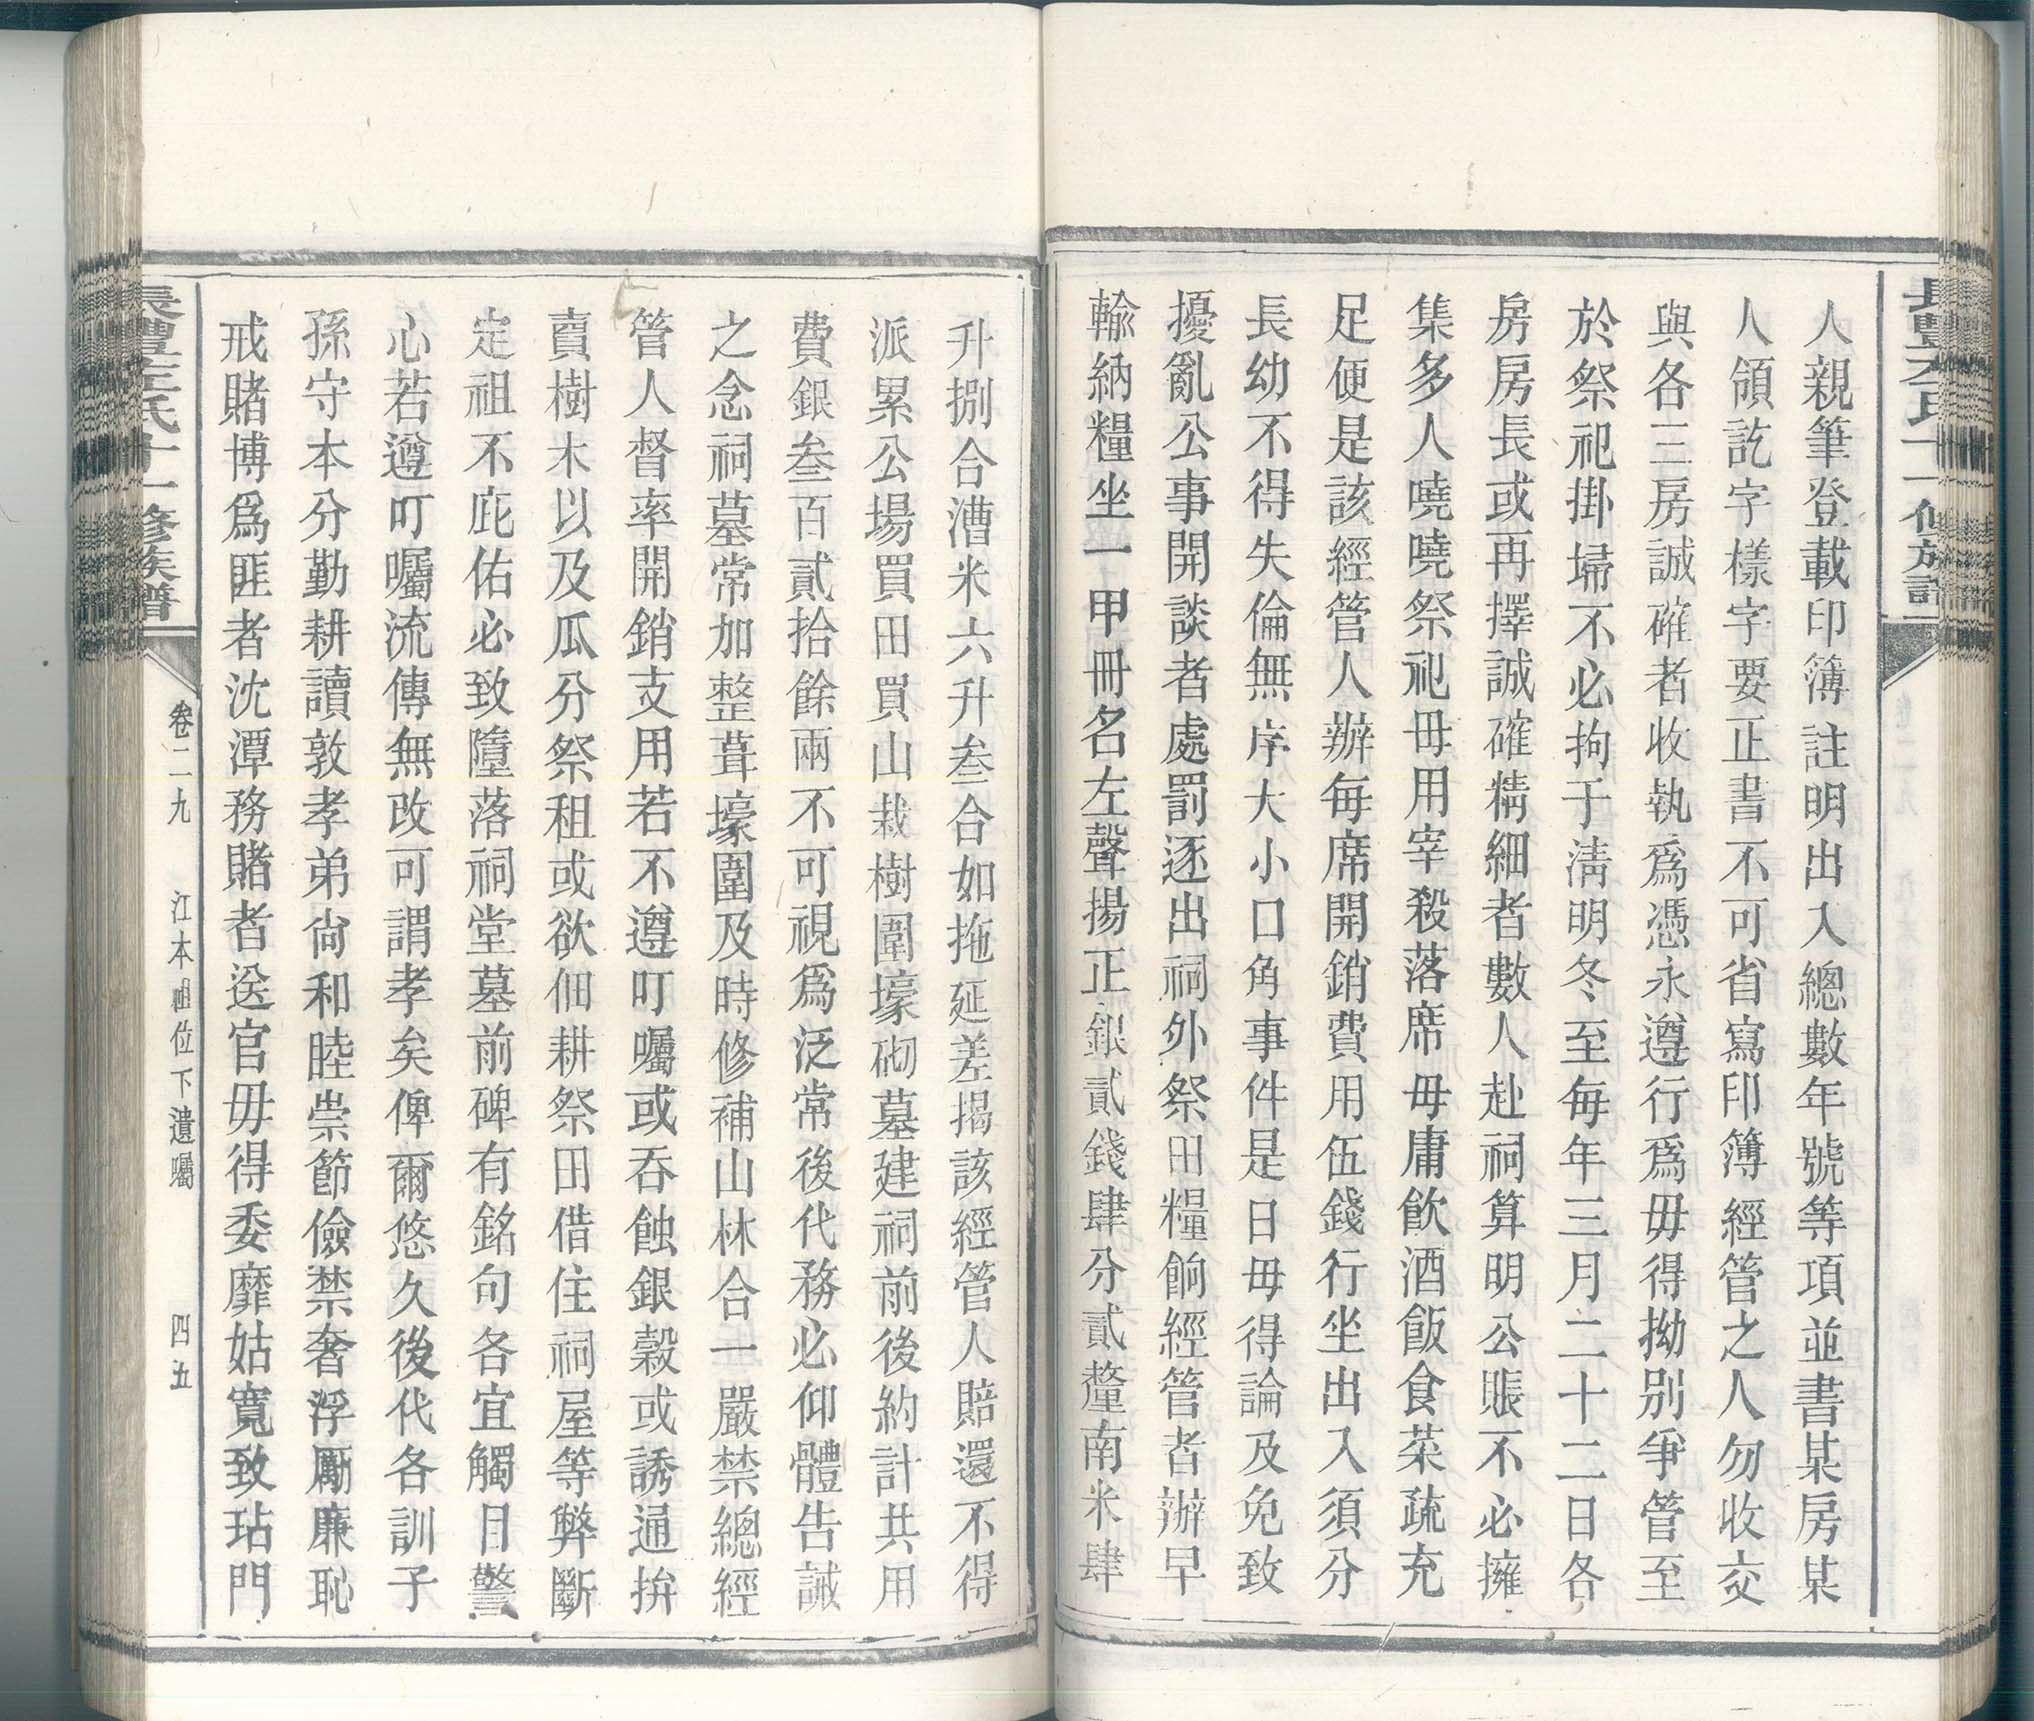 人親筆登載印簿註明出入總數年號等項並書某房某
人領訖字樣字要正書不可省寫印簿經管之人勿收交
與各三房誠確者收執爲憑永遵行爲毋得拗別爭管至
於祭祀掛埽不必拘于清明冬至每年三月二十二日各
房房長或再擇誠確精細者數人赴祠算明公賬不必擁
集多人嘵嘵祭祀毋用宰殺落席毋庸飲酒飯食菜疏充
足便是該經管人辦每席開銷費用伍錢行坐出入須分
長幼不得失倫無序大小口角事件是日毋得論及免致
擾亂公事開談者處罰逐出祠外祭田糧餉經管者辦早
輸納糧坐一甲冊名左聲揚正銀貳錢肆分貳釐南米肆
升捌合漕米六升叁合如拖延差揭該經管人賠還不得
派累公場買田買山栽樹圍壕砌墓建祠前後約計共用
費銀叁百貳拾餘兩不可視爲泛常後代務必仰體告誡
之念祠墓常加整葺壕圍及時修補山林合一嚴禁總經
管人督率開銷支用若不遵叮囑或吞蝕銀穀或誘通拚
賣樹木以及瓜分祭租或欲佃耕祭田借住祠屋等弊斷
定祖不庇佑必致墮落祠堂墓前碑有銘句各宜觸目警
心若遵叮囑流傳無改可謂孝矣俾爾悠久後代各訓子
孫守本分勤耕讀敦孝弟尙和睦崇節儉禁奢浮勵廉恥
戒賭博爲匪者沈潭務賭者送官毋得委靡姑寬致玷門
長豐左氏十一修族譜
卷二九
江本祖位下遺囑
四五